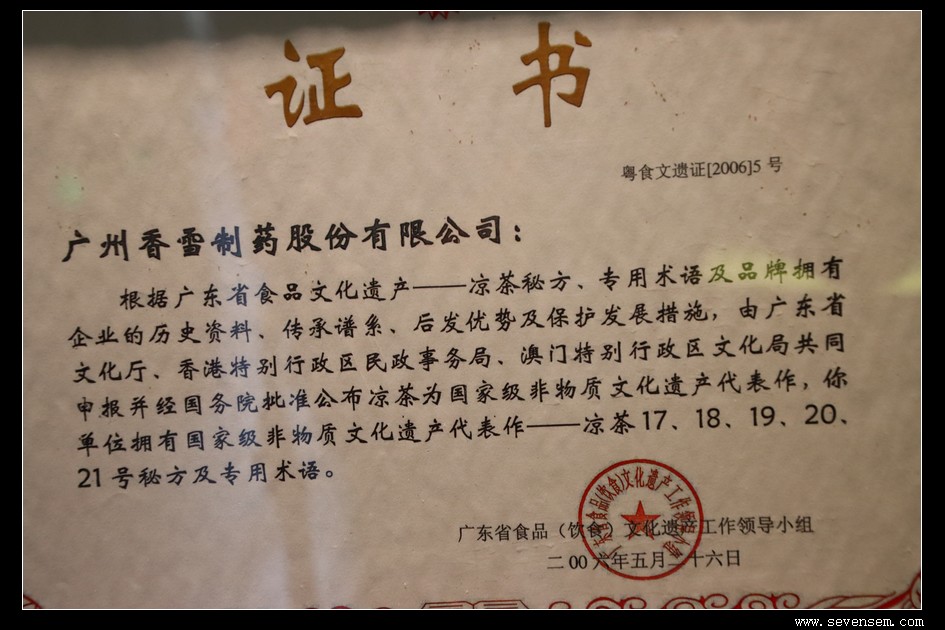 证 书
粤食文遗证[2006]5 号
广州香雪制药股份有限公司：
根据广东省食品文化遗产——凉茶秘方、专用术语及品牌拥有
企业的历史资料、传承谱系、后发优势及保护发展措施，由广东省
文化厅、香港特别行政区民政事务局、澳门特别行政区文化局共同
申报并经国务院批准公布凉茶为国家级非物质文化遗产代表作，你
单位拥有国家级非物质文化遗产代表作——凉茶17、18、19、20、
21号秘方及专用术语。
广东省食品（饮食）文化遗产工作领导小组
二00六年五月二十六日
广东省食品(饮食)文化遗产工作领导小组
www.sevensem.com